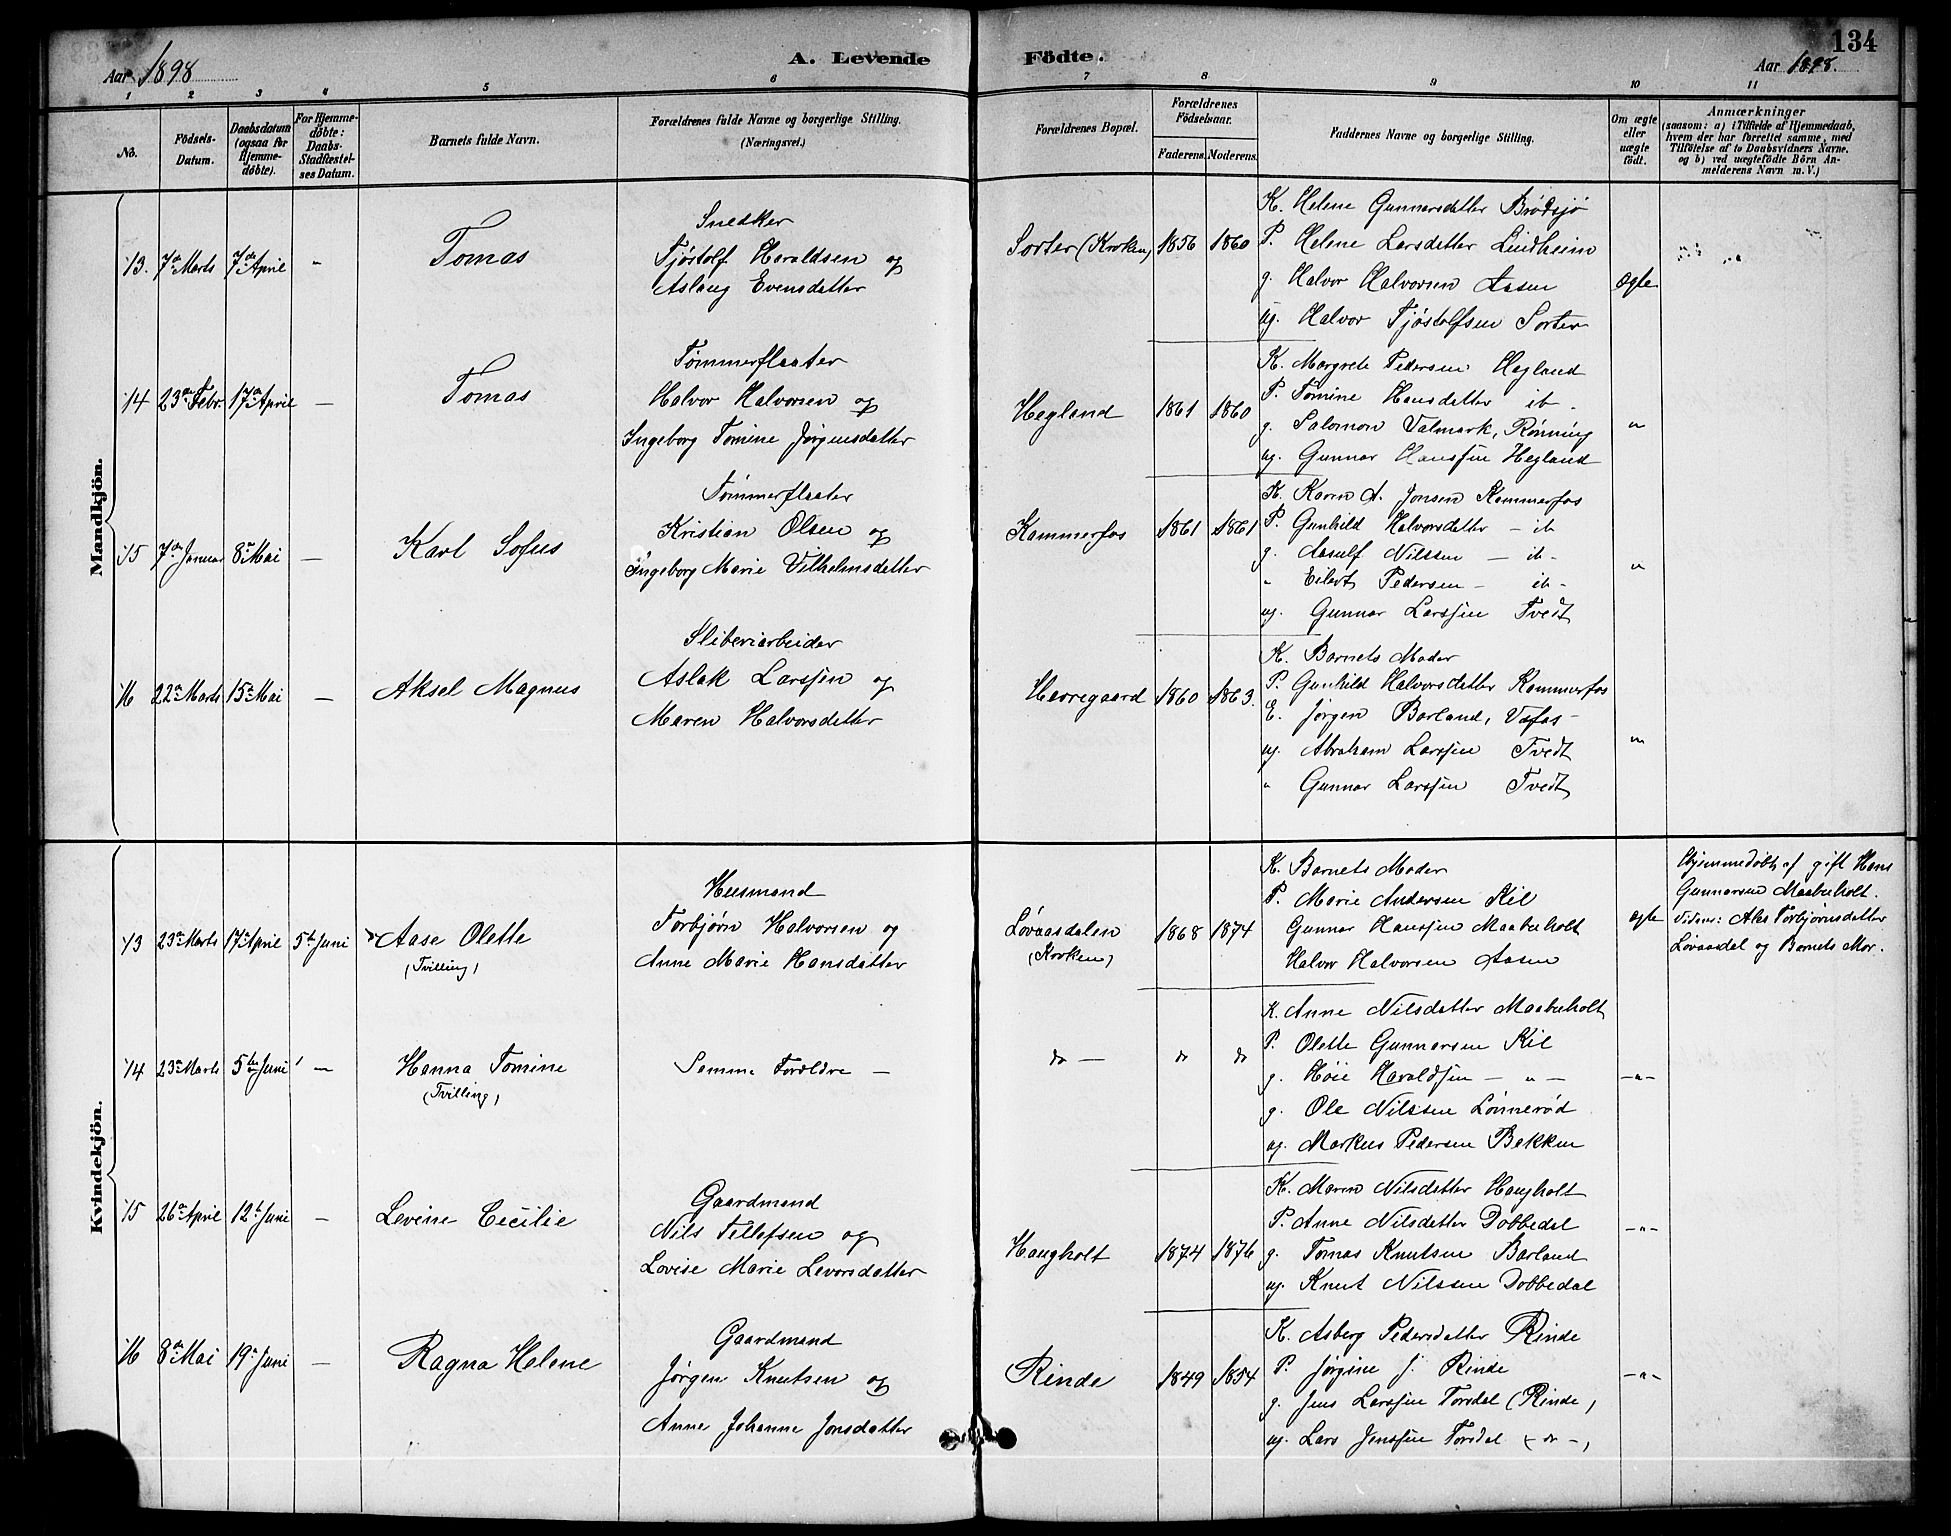 134
Aar 1898.
A. Levende Födte.
Aar 1898.
1 2 3 4 5 6 7 8 9 10 11
No.
Födsels-Datum.
Daabsdatum (ogsaa for Hjemme-döbte).
For Hjemme-döbte: Daabs-Stadfæstel-ses Datum.
Barnets fulde Navn.
Forældrenes fulde Navne og borgerlige Stilling.
(Næringsvei.)
Forældrenes Bopæl.
Forældrenes Födselsaar.
Faderens. Moderens.
Faddernes Navne og borgerlige Stilling.
Om ægte eller uægte födt.
Anmærkninger
(saasom: a) i Tilfælde af Hjemmedaab,
hvem der har forrettet samme, med
Tilföielse af to Daabsvidners Navne.
og b) ved uægtefödte Börn An-
melderens Navn m. V.)
Mandkjön.
13. 7de Marts 7de April " Tomas
Snedker
Tjøstolf Haraldsen og
Aslaug Evensdatter
Sorter (Kroken) 1856 1860
K. Helene Gunnarsdatter Brødsjø
P. Helene Larsdatter Lindheim
g. Halvor Halvorsen Aasen
ug. Halvor Tjøstolfsen Sorter
Ægte
14 23de Febr. 17de April — Tomas
Tømmerflaater
Halvor Halvorsen og
Ingeborg Tomine Jørgensdatter
Hegland 1861 1860
K. Margrete Pedersen Hegland
P. Tomine Hansdatter it -
g. Salomon Valmark, Rønning
ug. Gunnar Hanssen Hegland
"
15 7de Januar 8de Mai — Karl Sofus
Tømmerflaater
Kristian Olsen og
Ingeborg Marie Vilhelmsdatter
Kammerfos 1861 1861
K. Karen A. Jonsen Kammerfos
P. Gunhild Halvorsdatter - it
g. Aasulf Nilssen - it -
" Eilert Pedersen - it -
ug. Gunnar Larssen Tvedt
"
16 22de Marts 15de Mai — Aksel Magnus
Sliberiarbeider
Aslak Larssen og
Maren Halvorsdatter
Herregaard 1860 1863.
K. Barnets Moder
P. Gunhild Halvorsdatter Kammerfos
E. Jørgen Barland, Vafos -
ug. Abraham Larssen Tvedt
" Gunnar Larssen Tvedt
"
Kvindekjön.
13 23de Marts 17de April 5te Juni Aase Olette
(Tvilling)
Husmand
Torbjørn Halvorsen og
Anne Marie Hansdatter
Løvaasdalen
(Kroken)
1868 1874
K. Barnets Moder
P. Marie Andersen Kil
Gunnar Hanssen Maaberholt
Halvor Halvorsen Aasen
Ægte
Hjemmedøbt af gift Hans
Gunnarsen Maaberholt.
Vidner: Aase Torbjørnsdatter
Løvaasdal og Barnets Mor.
14 23de Marts 5te Juni — Hanna Tomine
(Tvilling)
Samme Forældre —
do — do do
K. Anne Nilsdatter Maaberholt
P. Olette Gunnarsen Kil
g. Høie Haraldsen - " -
g. Ole Nilssen Lønnerød
ug. Markus Pedersen Bekken
-"-
15 26de April 12te Juni — Levine Cecilie
Gaardmand
Nils Tellefsen og
Lovise Marie Levorsdatter
Haugholt 1874 1876
K. Maren Nilsdatter Haugholt
P. Anne Nilsdatter Dobbedal
g. Tomas Knutsen Barland
ug. Knut Nilssen Dobbedal
-"-
16 8de Mai 19de Juni — Ragna Helene
Gaardmand
Jørgen Knutsen og
Anne Johanne Jonsdatter
Rinde 1849 1854
K. Asberg Pedersdatter Rinde
P. Jørgine J. Rinde
g. Jens Larssen Torsdal (Rinde)
ug. Lars Jenssen Torsdal (- do -)
-"-